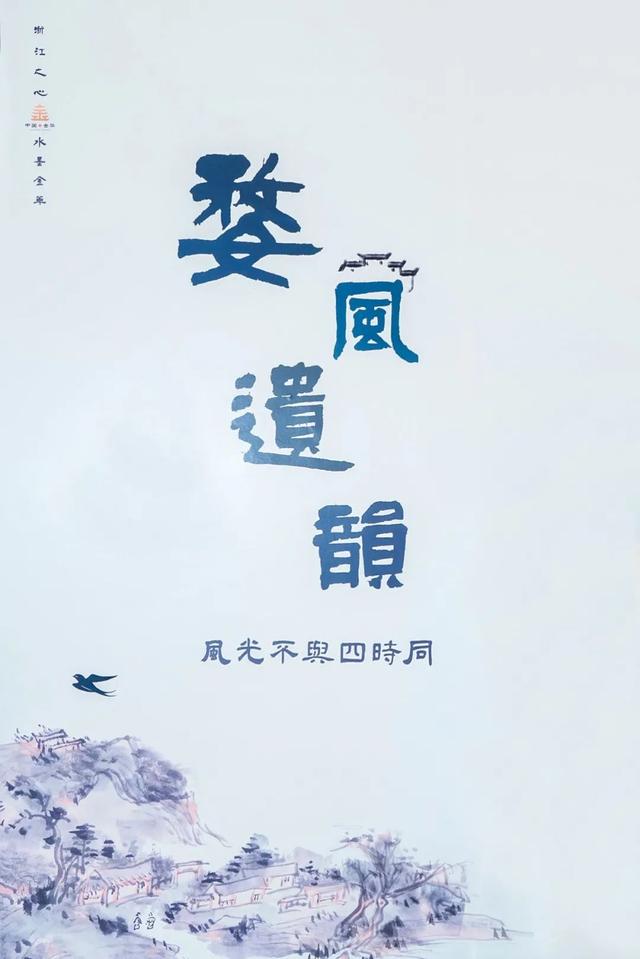 浙江之心
中国·金华
水墨金华
婺
風
遺
韻
風光不與四時同